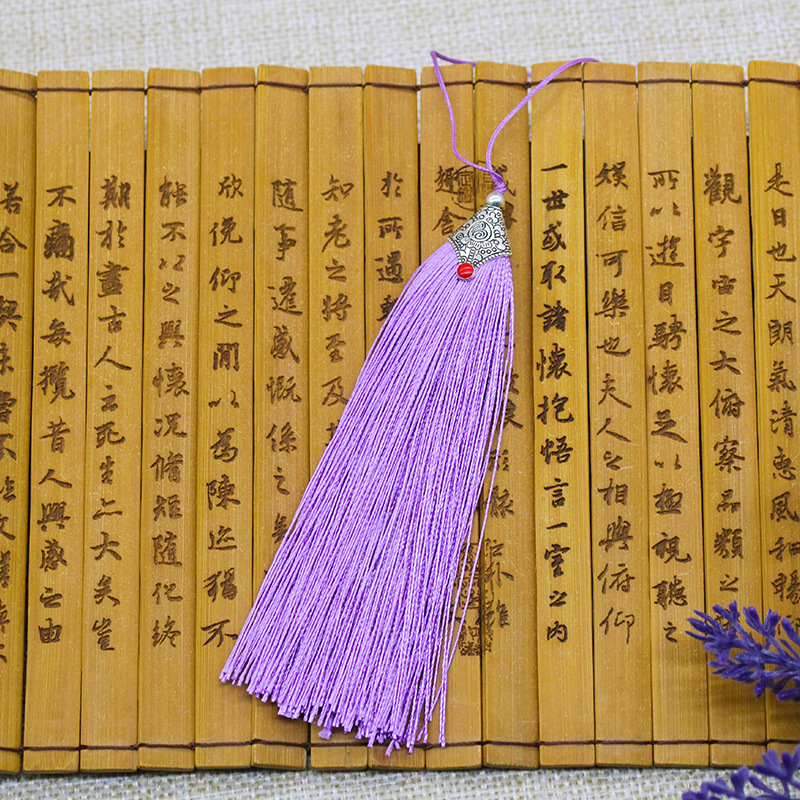 是日也天朗氣清惠風和暢
觀宇宙之大俯察品類之
所以遊目騁懷足以極視聽之
娛信可樂也夫人之相與俯仰
一世或取諸懷抱悟言一室之內
外雖
舍
於所遇
知老之將至及
隨事遷感慨係之矣
欣俛仰之閒以為陳迹猶不
能不以之興懷況脩短隨化終
期於盡古人云死生亦大矣豈
不痛哉每攬昔人興感之由
若合一契未嘗不臨文嗟